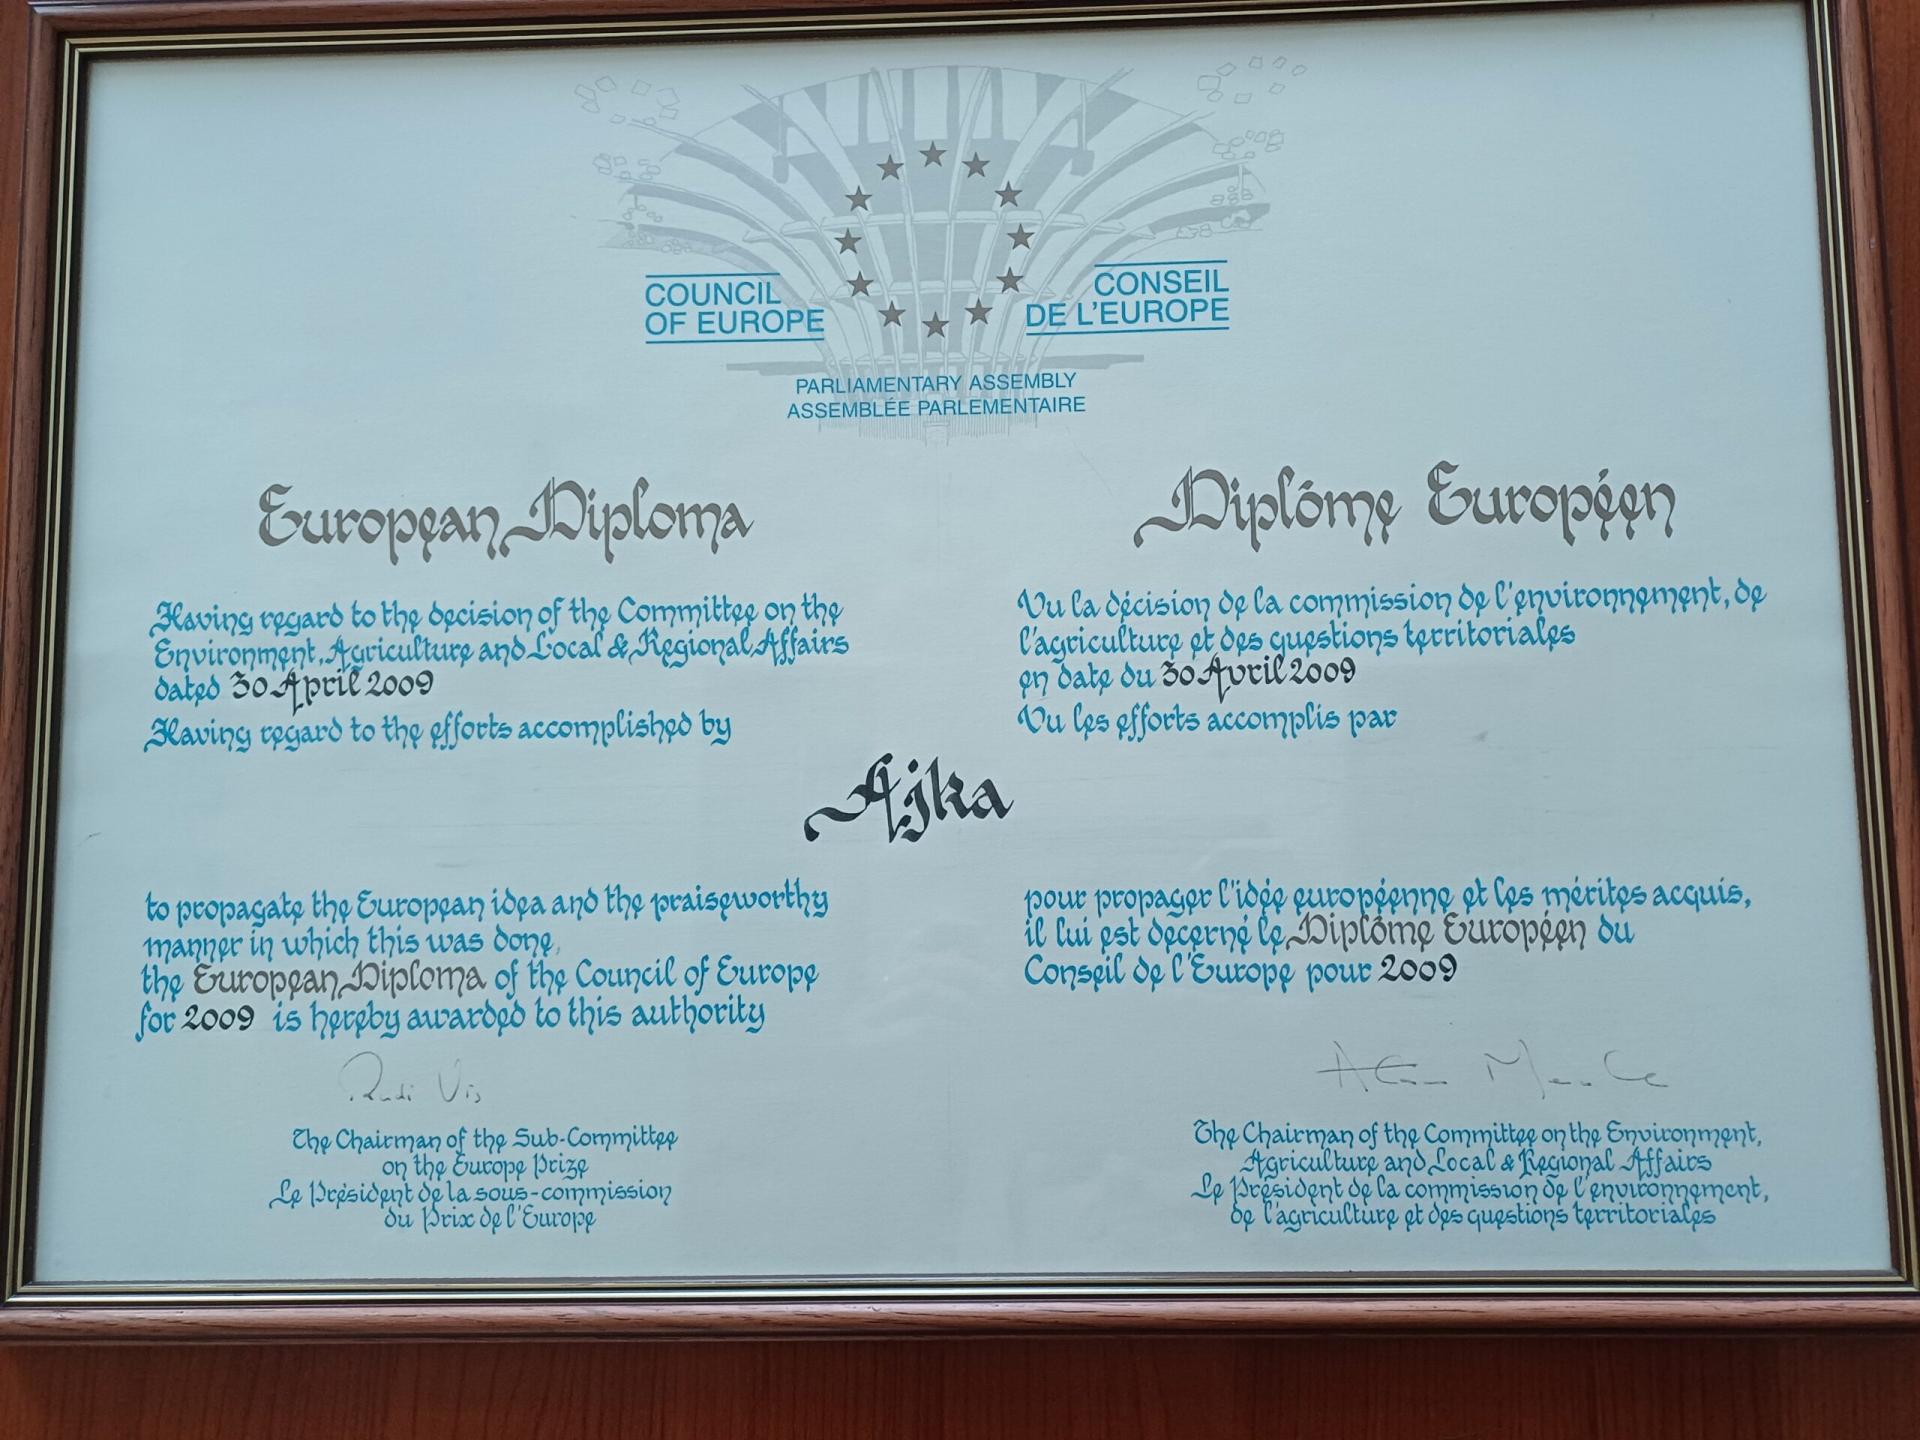 COUNCIL
OF EUROPE
CONSEIL
DE L'EUROPE
PARLIAMENTARY ASSEMBLY
ASSEMBLÉE PARLEMENTAIRE
European Diploma
Having regard to the decision of the Committee on the
Environment, Agriculture and Local & Regional Affairs
dated 30 April 2009
Having regard to the efforts accomplished by
Diplôme Européen
Vu la décision de la commission de l'environnement, de
l'agriculture et des questions territoriales
en date du 30 Avril 2009
Vu les efforts accomplis par
Ajka
to propagate the European idea and the praiseworthy
manner in which this was done,
the European Diploma of the Council of Europe
for 2009 is hereby awarded to this authority
pour propager l'idée européenne et les mérites acquis,
il lui est décerné le Diplôme Européen du
Conseil de l'Europe pour 2009
Rudi Vis
The Chairman of the Sub-Committee
on the Europe Prize
Le Président de la sous-commission
du Prix de l'Europe
The Chairman of the Committee on the Environment,
Agriculture and Local & Regional Affairs
Le Président de la commission de l'environnement,
de l'agriculture et des questions territoriales